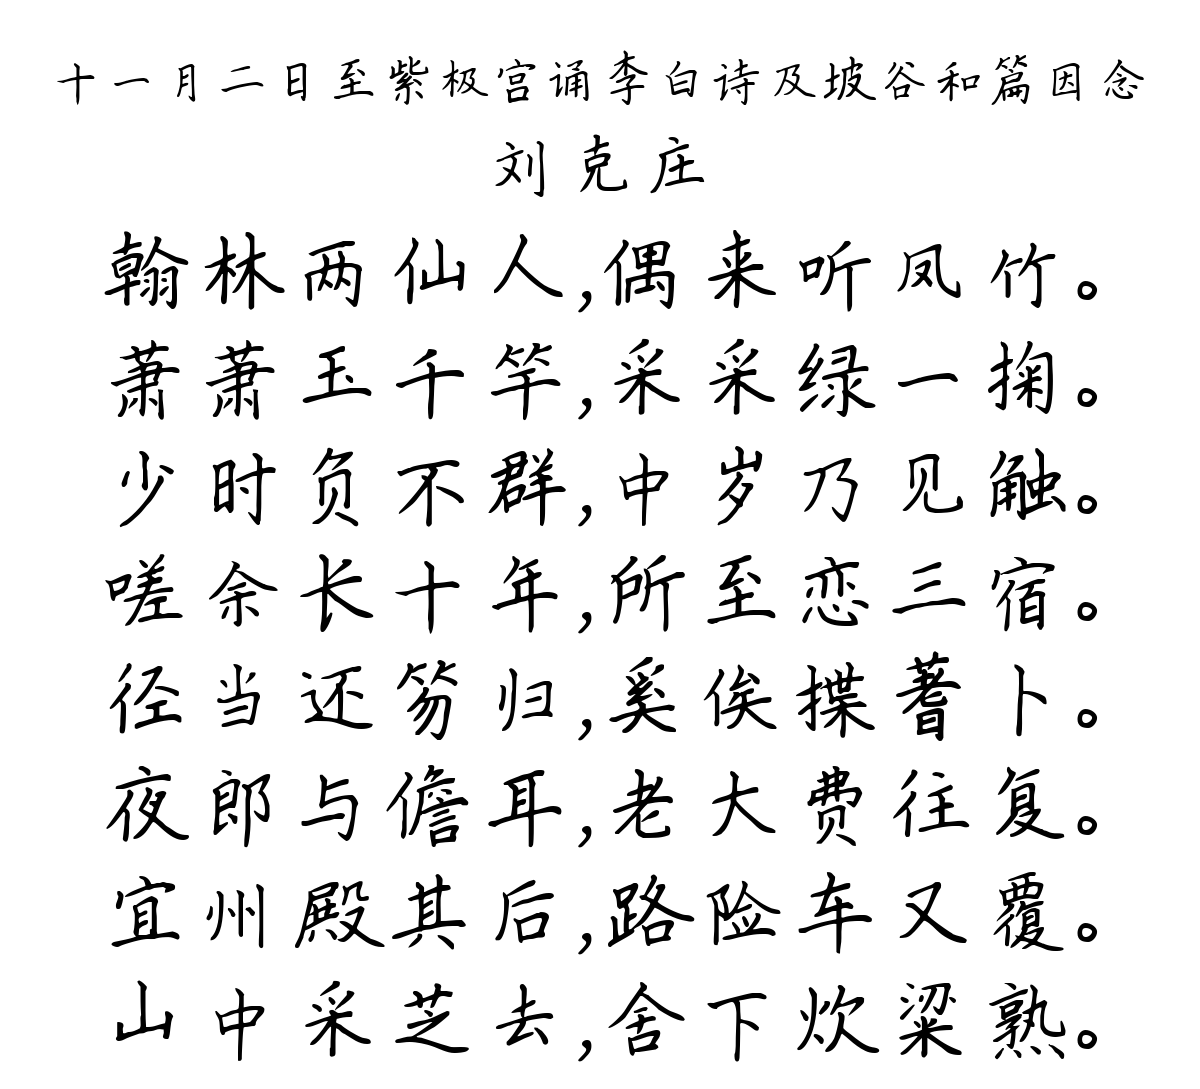 十一月二日至紫极宫诵李白诗及坡谷和篇因念
刘克庄
翰林两仙人,偶来听凤竹。
萧萧玉千竿,采采绿一掬。
少时负不群,中岁乃见触。
嗟余长十年,所至恋三宿。
径当还笏归,奚俟揲蓍卜。
夜郎与儋耳,老大费往复。
宜州殿其后,路险车又覆。
山中采芝去,舍下炊粱熟。